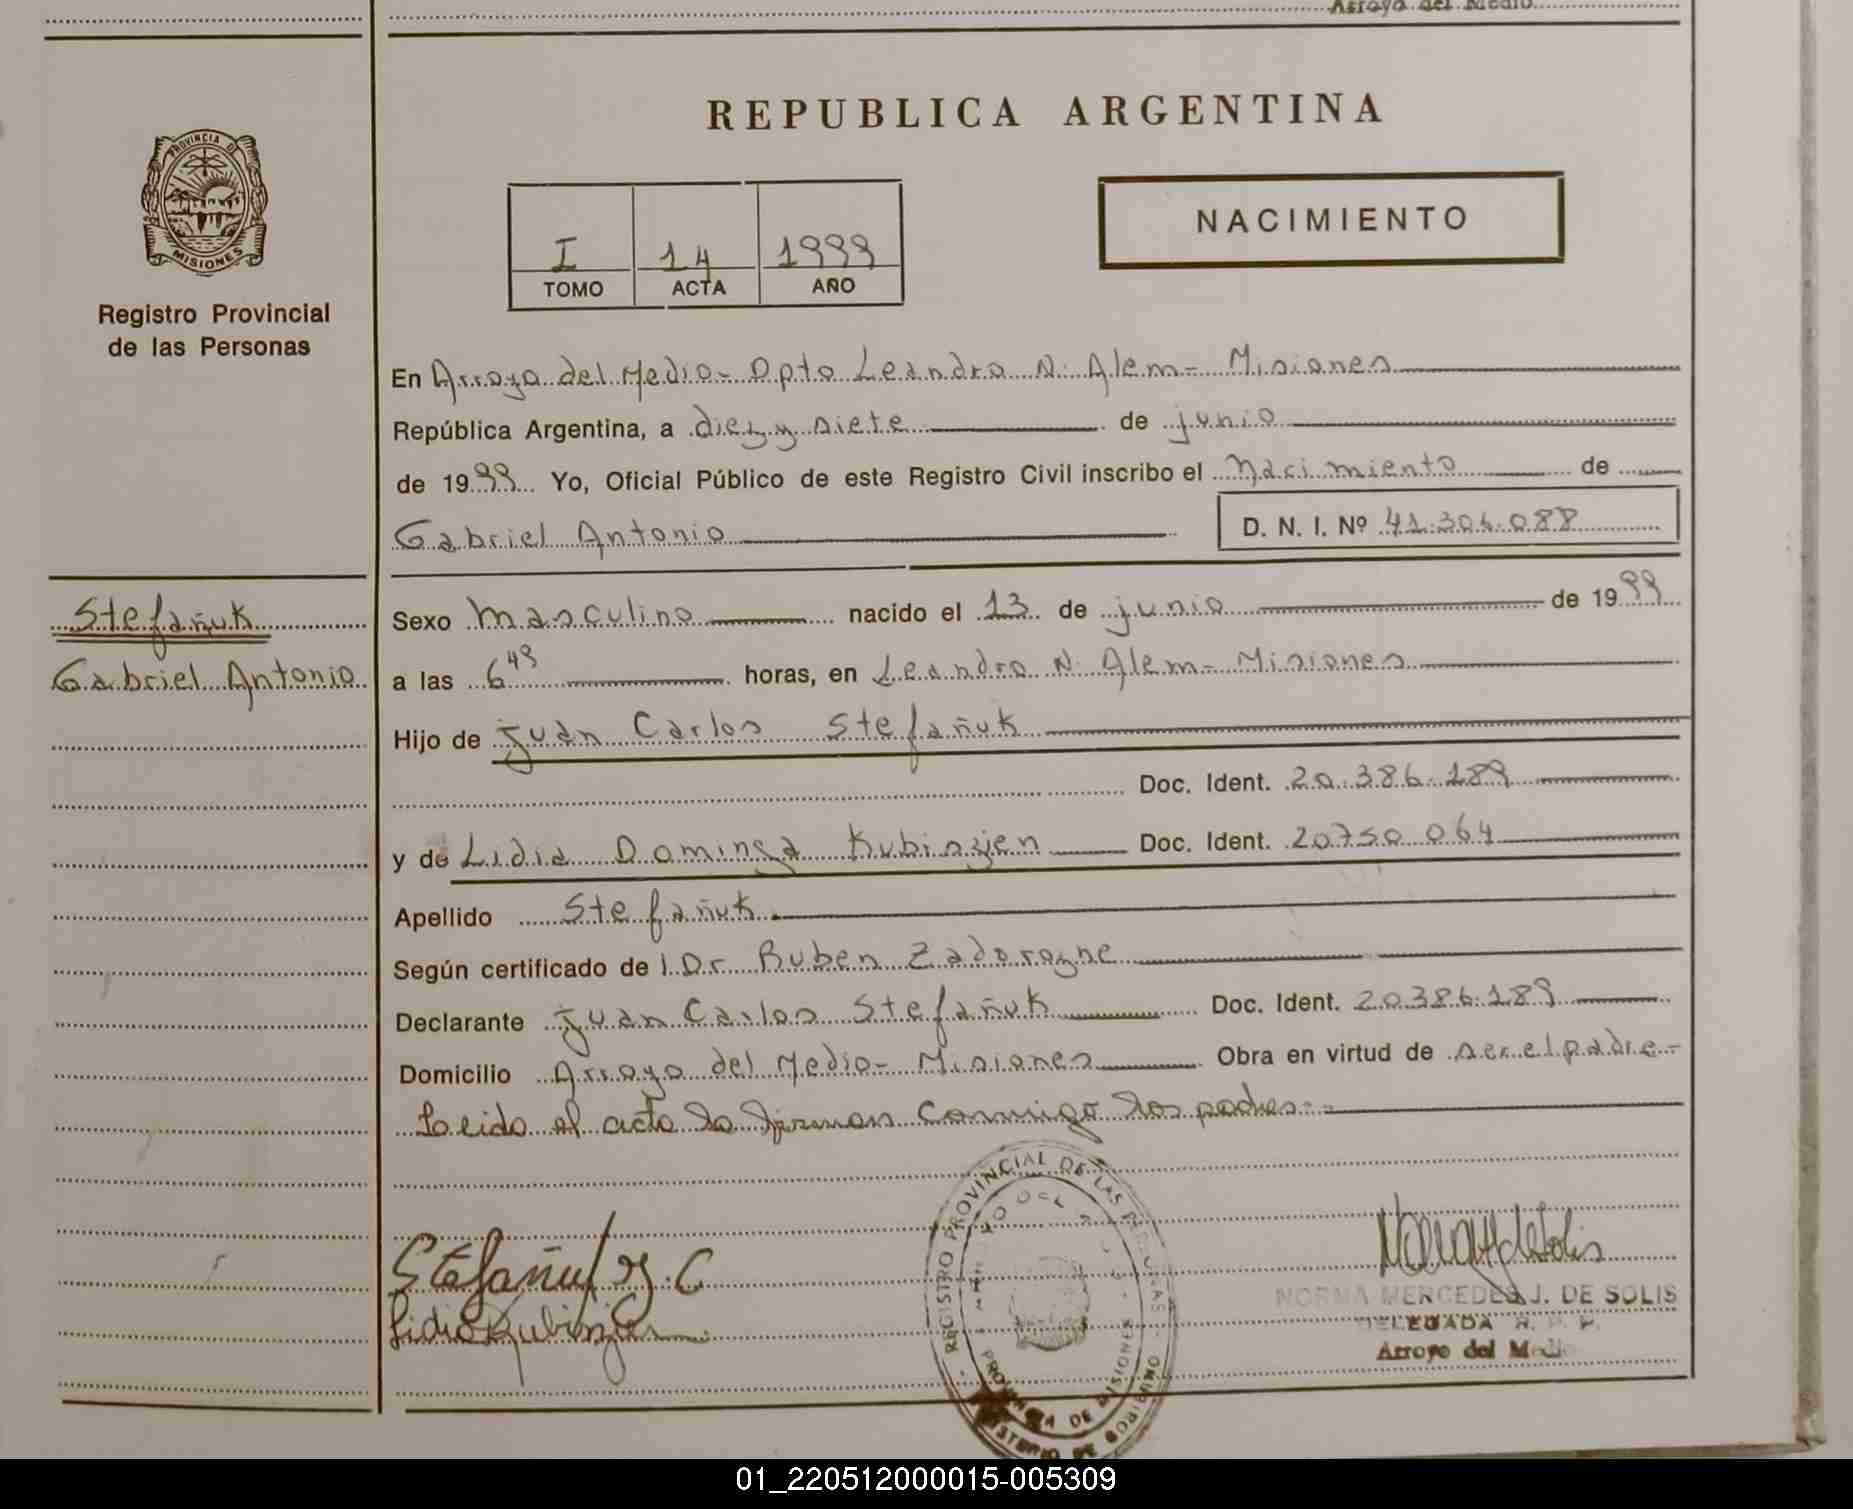 Arroyo del Medio
REPUBLICA ARGENTINA
PROVINCIA DE
MISIONES
Registro Provincial
de las Personas
I 14 1999
TOMO ACTA AÑO
NACIMIENTO
En Arroyo del Medio - Dpto Leandro N. Alem - Misiones
República Argentina, a diez y siete de junio
de 1999 Yo, Oficial Público de este Registro Civil inscribo el Nacimiento de
Gabriel Antonio D. N. I. Nº 41.306.088
Stefañuk
Gabriel Antonio
Sexo Masculino nacido el 13 de junio de 1999
a las 6 49 horas, en Leandro N. Alem - Misiones
Hijo de Juan Carlos Stefañuk
Doc. Ident. 20.386.189
y de Lidia Dominga Kubiszen Doc. Ident. 20750.064
Apellido Stefañuk
Según certificado de l Dr. Ruben Zadorozne
Declarante Juan Carlos Stefañuk Doc. Ident. 20386.189
Domicilio Arroyo del Medio - Misiones Obra en virtud de ser el padre -
Leido el acta la firman conmigo los padres. -
Stefañuk J. C
Lidia Kubiszen
REGISTRO PROVINCIAL DE LAS PERSONAS
PROVINCIA DE MISIONES
MINISTERIO DE GOBIERNO
NORMA MERCEDES J. DE SOLIS
DELEGADA R. P. P.
Arroyo del Medio
01_220512000015-005309